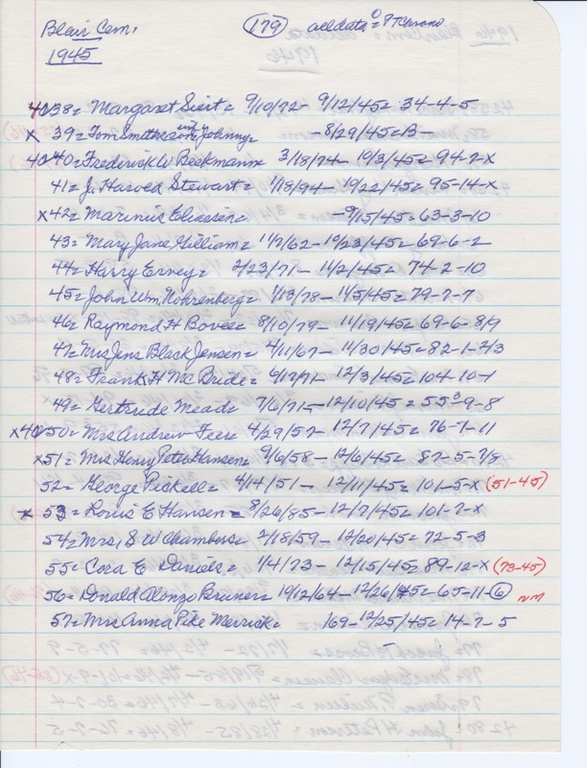 Blair Cem. (179) all data = 8 T Chrono
1945
4038 = Margaret Suit = 9/10/72 - 9/12/45 = 34-4-5
x 39 = Tom Smith Johnny = - 8/29/45 = B -
4040 = Frederick W Beekmann 3/18/74 - 10/3/45 = 94-2-x
41 = J. Harold Stewart = 1/18/94 - 10/22/45 = 95-14-x
x 42 = Marinus Eliasen = - 9/15/45 = 63-3-10
43 = Mary Jane Gilliam = 11/2/62 - 10/23/45 = 69-6-2
44 = Harry Ervey = 2/23/71 - 11/2/45 = 74-2-10
45 = John Wm. Nohrenberg = 1/13/78 - 11/5/45 = 79-7-7
46 = Raymond H Bovee = 8/10/79 - 11/19/45 = 69-6-8/9
47 = Mrs Jens Black Jensen = 4/11/67 - 11/30/45 = 82-1-2/3
48 = Frank H McBride = 6/17/71 - 12/3/45 = 104-10-1
49 = Gertrude Mead = 7/6/71 - 12/10/45 = 55-9-8
x 4050 = Mrs Andrew Feer = 4/29/57 - 12/7/45 = 76-7-11
x 51 = Mrs Henry Peter Hansen = 9/6/58 - 12/6/45 = 87-5-7/8
52 = George Pickell = 4/14/51 - 12/11/45 = 101-5-x (51-45)
x 53 = Louis E Hansen = 8/26/85 - 12/7/45 = 101-7-x
54 = Mrs. S W Chambers = 2/18/59 - 12/20/45 = 72-5-3
55 = Cora E Daniels = 1/4/73 - 12/15/45 = 89-12-x (73-45)
56 = Donald Alonzo Bruner = 10/12/64 - 12/26/45 = 65-11-6 nm
57 = Mrs Anna Pike Merrick = 1/69 - 12/25/45 = 14-7-5